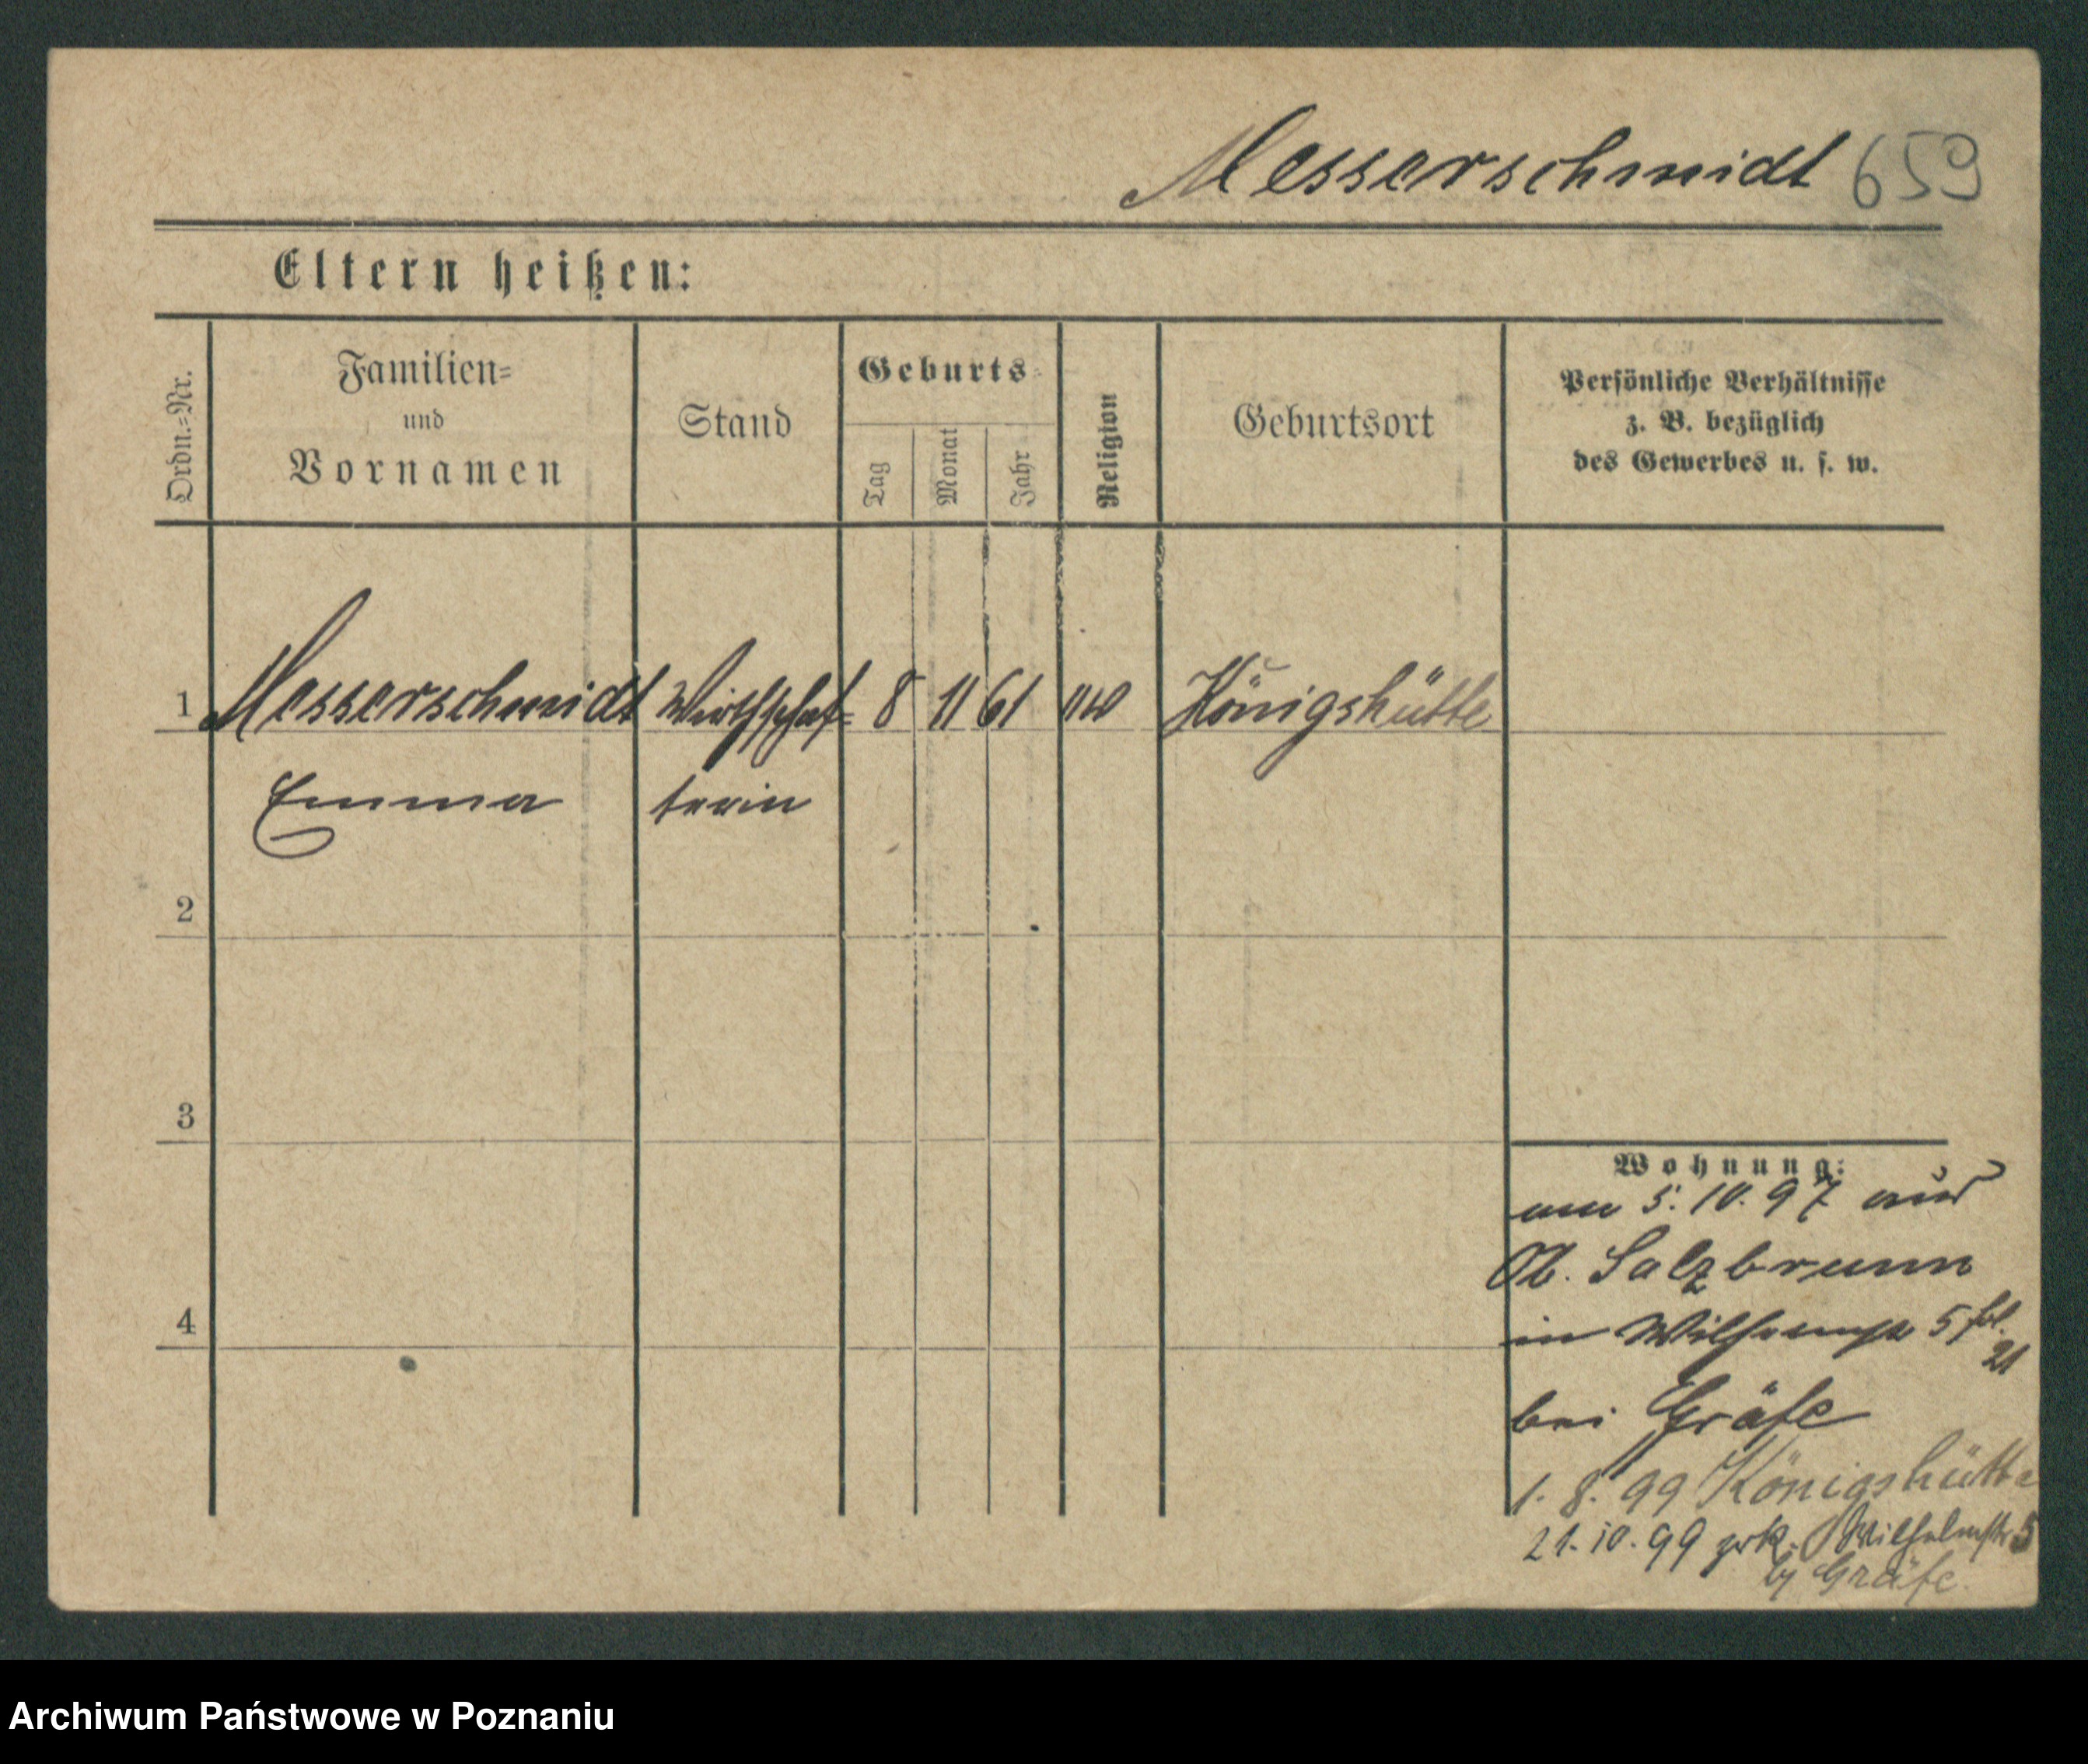 Messerschmidt 659
Eltern heißen:
Ordn.=Nr.
Familien=
und
Vornamen
Stand
Geburts=
Tag
Monat
Jahr
Religion
Geburtsort
Persönliche Verhältnisse
z. B. bezüglich
des Gewerbes u. s. w.
1 Messerschmidt Wirthschaf= 8 11 61 Königshütte
Emma terin
2
3
4
Wohnung:
am 5. 10. 97 aus
Ob. Salzbrunn
in 5
21
bei Gräfe
1. 8. 99 Königshütte
21. 10. 99 zrk. Wilhelmstr 5
bj Gräfe.
Archiwum Państwowe w Poznaniu